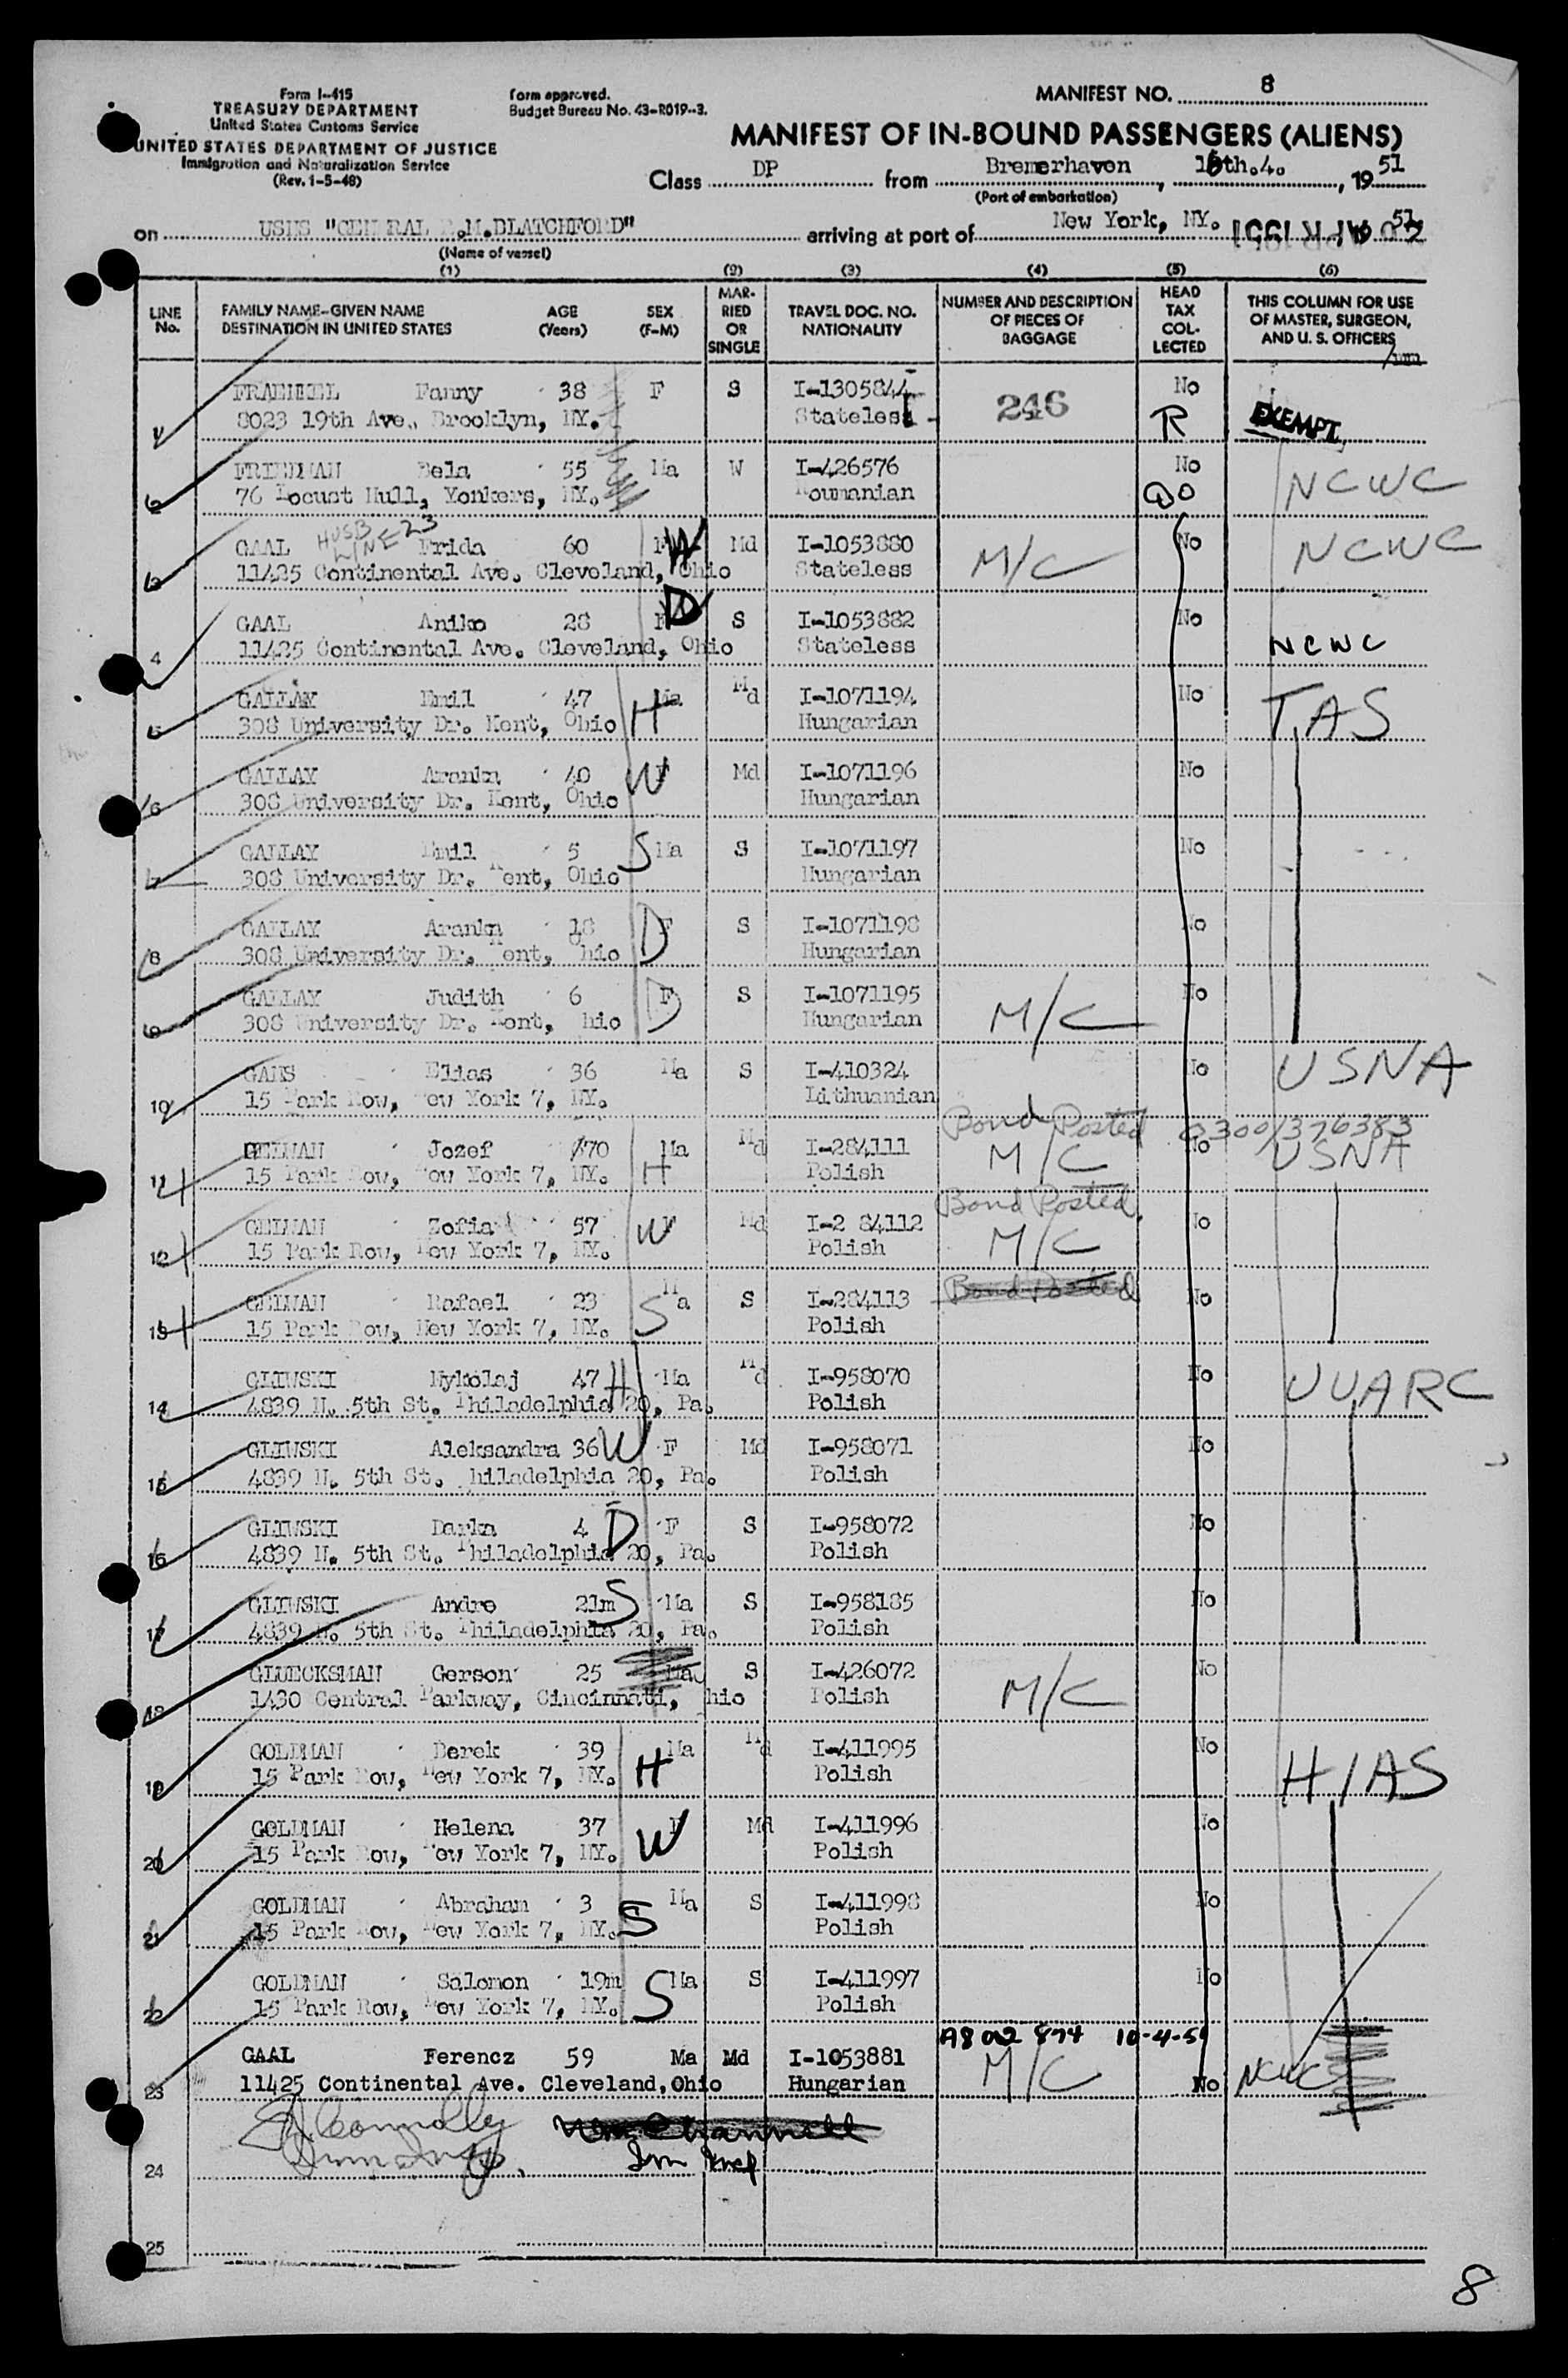 Form I-415
TREASURY DEPARTMENT
United States Customs Service
UNITED STATES DEPARTMENT OF JUSTICE
Immigration and Naturalization Service
(Rev. 1-5-48)
Form approved.
Budget Bureau No. 43-R019--3.
MANIFEST NO. 8
MANIFEST OF IN-BOUND PASSENGERS (ALIENS)
Class DP from Bremerhaven, 16th.4., 1951
(Port of embarkation)
on USNS "GENERAL R.M.BLATCHFORD" arriving at port of New York, NY. APR 1951 51
(Name of vessel)
(1) (2) (3) (4) (5) (6)
LINE No. FAMILY NAME-GIVEN NAME DESTINATION IN UNITED STATES AGE (Years) SEX (F-M) MARRIED OR SINGLE TRAVEL DOC. NO. NATIONALITY NUMBER AND DESCRIPTION OF PIECES OF BAGGAGE HEAD TAX COLLECTED THIS COLUMN FOR USE OF MASTER, SURGEON, AND U. S. OFFICERS
1 FRAENKEL Fanny 38 F S I-1305844 No
8023 19th Ave., Brooklyn, NY. Stateless 246 R EXEMPT
2 FRIEDMAN Bela 55 Ma W I-426576 No NCWC
76 Locust Hull, Yonkers, NY. Roumanian
HUSB LINE 23
3 GAAL Frida 60 F W Md I-1053880 M/C No NCWC
11425 Continental Ave. Cleveland, Ohio Stateless
4 GAAL Aniko 28 F D S I-1053882 No NCWC
11425 Continental Ave. Cleveland, Ohio Stateless
5 GALLAY Emil 47 H Ma Md I-1071194 No TAS
308 University Dr. Kent, Ohio Hungarian
6 GALLAY Aranka 40 W F Md I-1071196 No
308 University Dr. Kent, Ohio Hungarian
7 GALLAY Emil 5 S Ma S I-1071197 No
308 University Dr. Kent, Ohio Hungarian
8 GALLAY Aranka 18 D F S I-1071198 No
308 University Dr. Kent, Ohio Hungarian
9 GALLAY Judith 6 D F S I-1071195 M/C No
308 University Dr. Kent, Ohio Hungarian
10 GANS Elias 36 Ma S I-410324 No USNA
15 Park Row, New York 7, NY. Lithuanian
Bond Posted 0300/376383
11 GELMAN Jozef 70 H Ma Md I-284111 M/C No USNA
15 Park Row, New York 7, NY. Polish
Bond Posted
12 GELMAN Zofia 57 W F Md I-2 84112 M/C No
15 Park Row, New York 7, NY. Polish
Bond Posted
13 GELMAN Rafael 23 S Ma S I-284113 No
15 Park Row, New York 7, NY. Polish
14 GLIWSKI Mykolaj 47 H Ma Md I-958070 No UUARC
4839 N. 5th St. Philadelphia 20, Pa. Polish
15 GLIWSKI Aleksandra 36 W F Md I-958071 No
4839 N. 5th St. Philadelphia 20, Pa. Polish
16 GLIWSKI Darka 4 D F S I-958072 No
4839 N. 5th St. Philadelphia 20, Pa. Polish
17 GLIWSKI Andre 21m S Ma S I-958185 No
4839 N. 5th St. Philadelphia 20, Pa. Polish
18 GLUECKSMAN Gerson 25 Ma S I-426072 M/C No
1430 Central Parkway, Cincinnati, Ohio Polish
19 GOLDMAN Berek 39 H Ma Md I-411995 No HIAS
15 Park Row, New York 7, NY. Polish
20 GOLDMAN Helena 37 W F Md I-411996 No
15 Park Row, New York 7, NY. Polish
21 GOLDMAN Abraham 3 S Ma S I-411998 No
15 Park Row, New York 7, NY. Polish
22 GOLDMAN Salomon 19m S Ma S I-411997 No
15 Park Row, New York 7, NY. Polish
A8 002 874 10-4-51
23 GAAL Ferencz 59 Ma Md I-1053881 M/C No NCWC
11425 Continental Ave. Cleveland, Ohio Hungarian
Connolly
24 Imm Insp
25
8